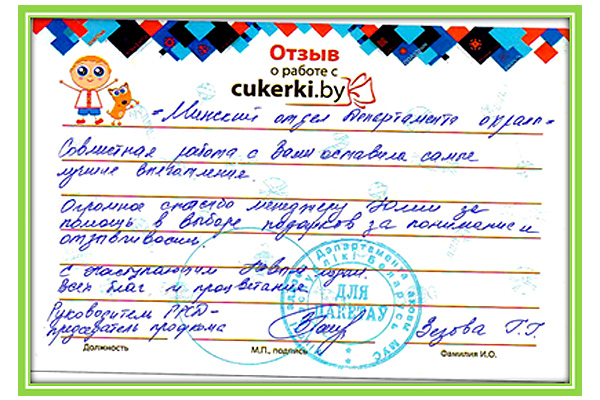 Отзыв
о работе с
cukerki.by
"Минский отдел Департамента охраны"
Совместная работа с Вами оставила самые
лучшие впечатления.
Огромное спасибо менеджеру Юлии за
помощь в выборе подарков за понимание и
отзывчивость.
С наступающим Новым годом.
Всех благ и процветания.
Руководитель
председатель профкома
Г.Г.
Должность
М.П., подпись
Фамилия И.О.
Дэпартамента аховы МУС
ДЛЯ
ПАКЕТАЎ